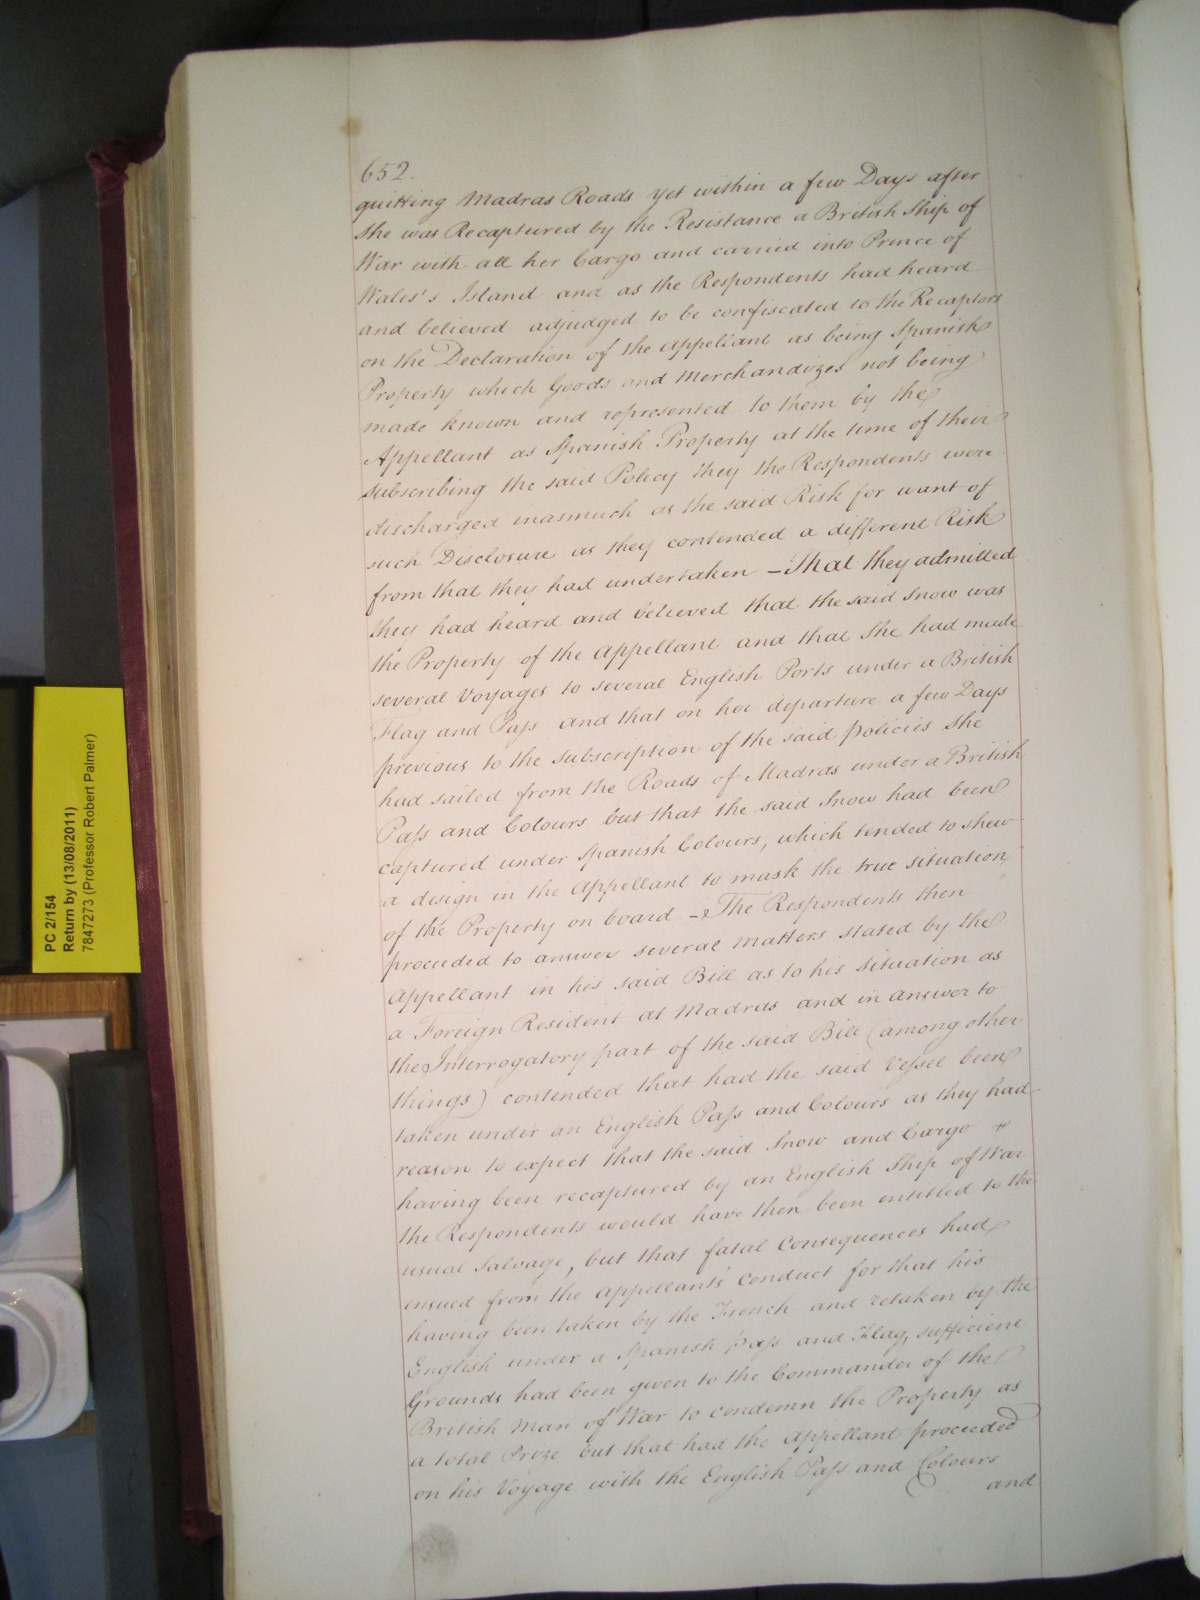 652.
quitting Madras Roads yet within a few Days after
she was Recaptured by the Resistance a British Ship of
War with all her Cargo and carried into Prince of
Wales's Island and as the Respondents had heard
and believed adjudged to be confiscated to the Recaptors
on the Declaration of the Appellant as being Spanish
Property which Goods and Merchandizes not being
made known and represented to them by the
Appellant as Spanish Property at the time of their
subscribing the said Policy they the Respondents were
discharged inasmuch as the said Risk for want of
such Disclosure as they contended a different Risk
from that they had undertaken – That they admitted
they had heard and believed that the said Snow was
the Property of the Appellant and that she had made
several Voyages to several English Ports under a British
Flag and Pass and that on her departure a few Days
previous to the subscription of the said Policies she
had sailed from the Roads of Madras under a British
Pass and Colours but that the said Snow had been
captured under Spanish Colours, which tended to shew
a design in the Appellant to mask the true situation
of the Property on board – The Respondents then
proceeded to answer several matters stated by the
Appellant in his said Bill as to his situation as
a Foreign Resident at Madras and in answer to
the Interrogatory part of the said Bill (among other
things) contended that had the said Vessel been
taken under an English Pass and Colours as they had
reason to expect that the said Snow and Cargo
having been recaptured by an English Ship of War
the Respondents would have then been entitled to the
usual Salvage, but that fatal Consequences had
ensued from the Appellants' conduct for that his
having been taken by the French and retaken by the
English under a Spanish Pass and Flag, sufficient
Grounds had been given to the Commander of the
British Man of War to condemn the Property as
a total Prize but that had the Appellant proceeded
on his Voyage with the English Pass and Colours
and
PC 2/154
Return by (13/08/2011)
7847273 (Professor Robert Palmer)